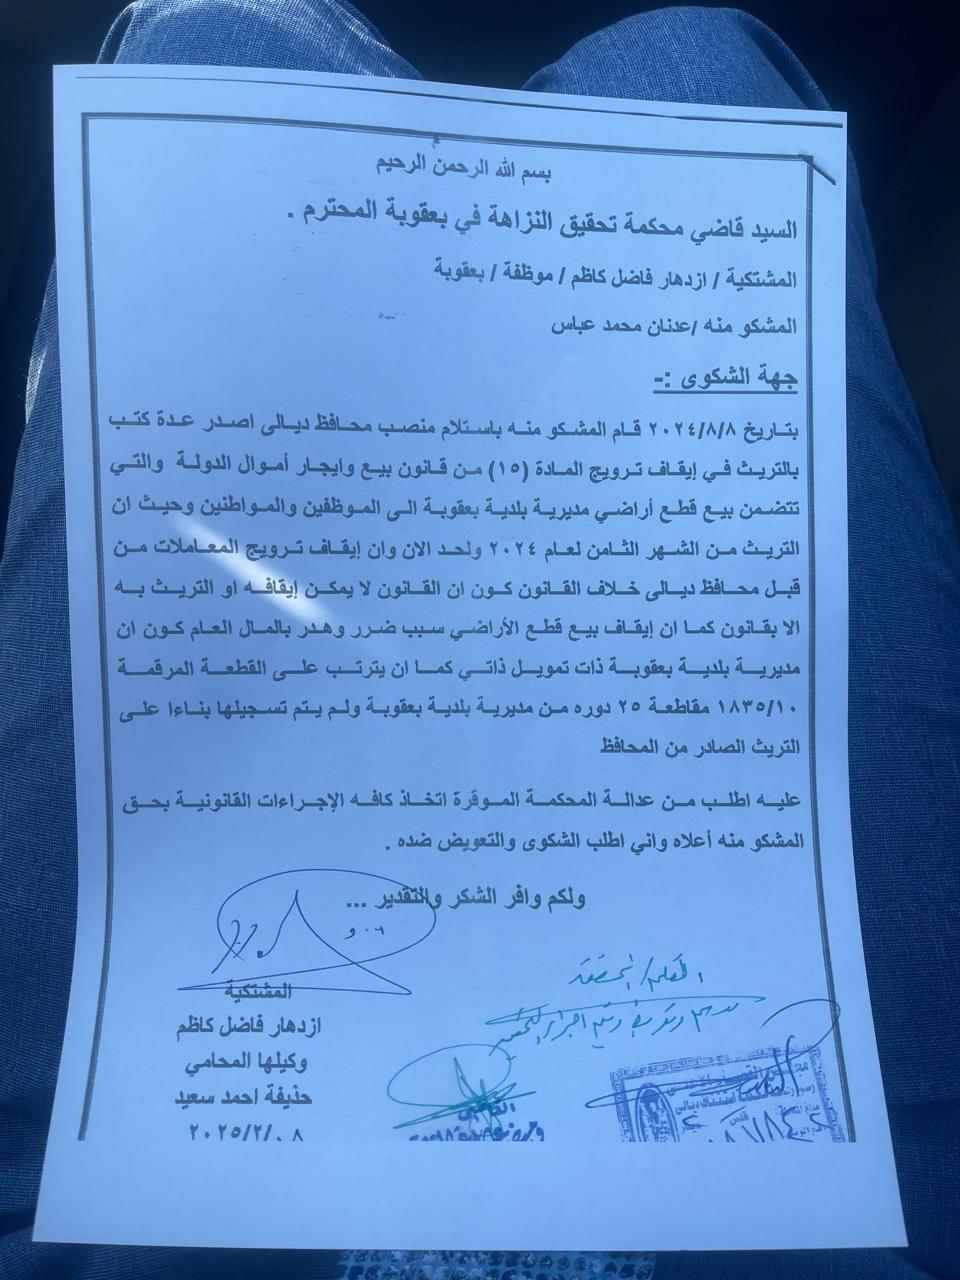 بسم الله الرحمن الرحيم
السيد قاضي محكمة تحقيق النزاهة في بعقوبة المحترم .
المشتكية / ازدهار فاضل كاظم / موظفة / بعقوبة
المشكو منه /عدنان محمد عباس
جهة الشكوى :-
بتاريخ ٢٠٢٤/٨/٨ قام المشكو منه باستلام منصب محافظ ديالى اصدر عدة كتب
بالتريث في إيقاف ترويج المادة (١٥) من قانون بيع وايجار أموال الدولة والتي
تتضمن بيع قطع أراضي مديرية بلدية بعقوبة الى الموظفين والمواطنين وحيث ان
التريث من الشهر الثامن لعام ٢٠٢٤ ولحد الان وان إيقاف ترويج المعاملات من
قبل محافظ ديالى خلاف القانون كون ان القانون لا يمكن إيقافه او التريث به
الا بقانون كما ان إيقاف بيع قطع الأراضي سبب ضرر وهدر بالمال العام كون ان
مديرية بلدية بعقوبة ذات تمويل ذاتي كما ان يترتب على القطعة المرقمة
١٨٣٥/١٠ مقاطعة ٢٥ دوره من مديرية بلدية بعقوبة ولم يتم تسجيلها بناءا على
التريث الصادر من المحافظ
عليه اطلب من عدالة المحكمة الموقرة اتخاذ كافه الإجراءات القانونية بحق
المشكو منه أعلاه واني اطلب الشكوى والتعويض ضده .
ولكم وافر الشكر والتقدير ...
المشتكية
ازدهار فاضل كاظم
وكيلها المحامي
حذيفة احمد سعيد
٢٠٢٥/٢/٠٨
القاضي